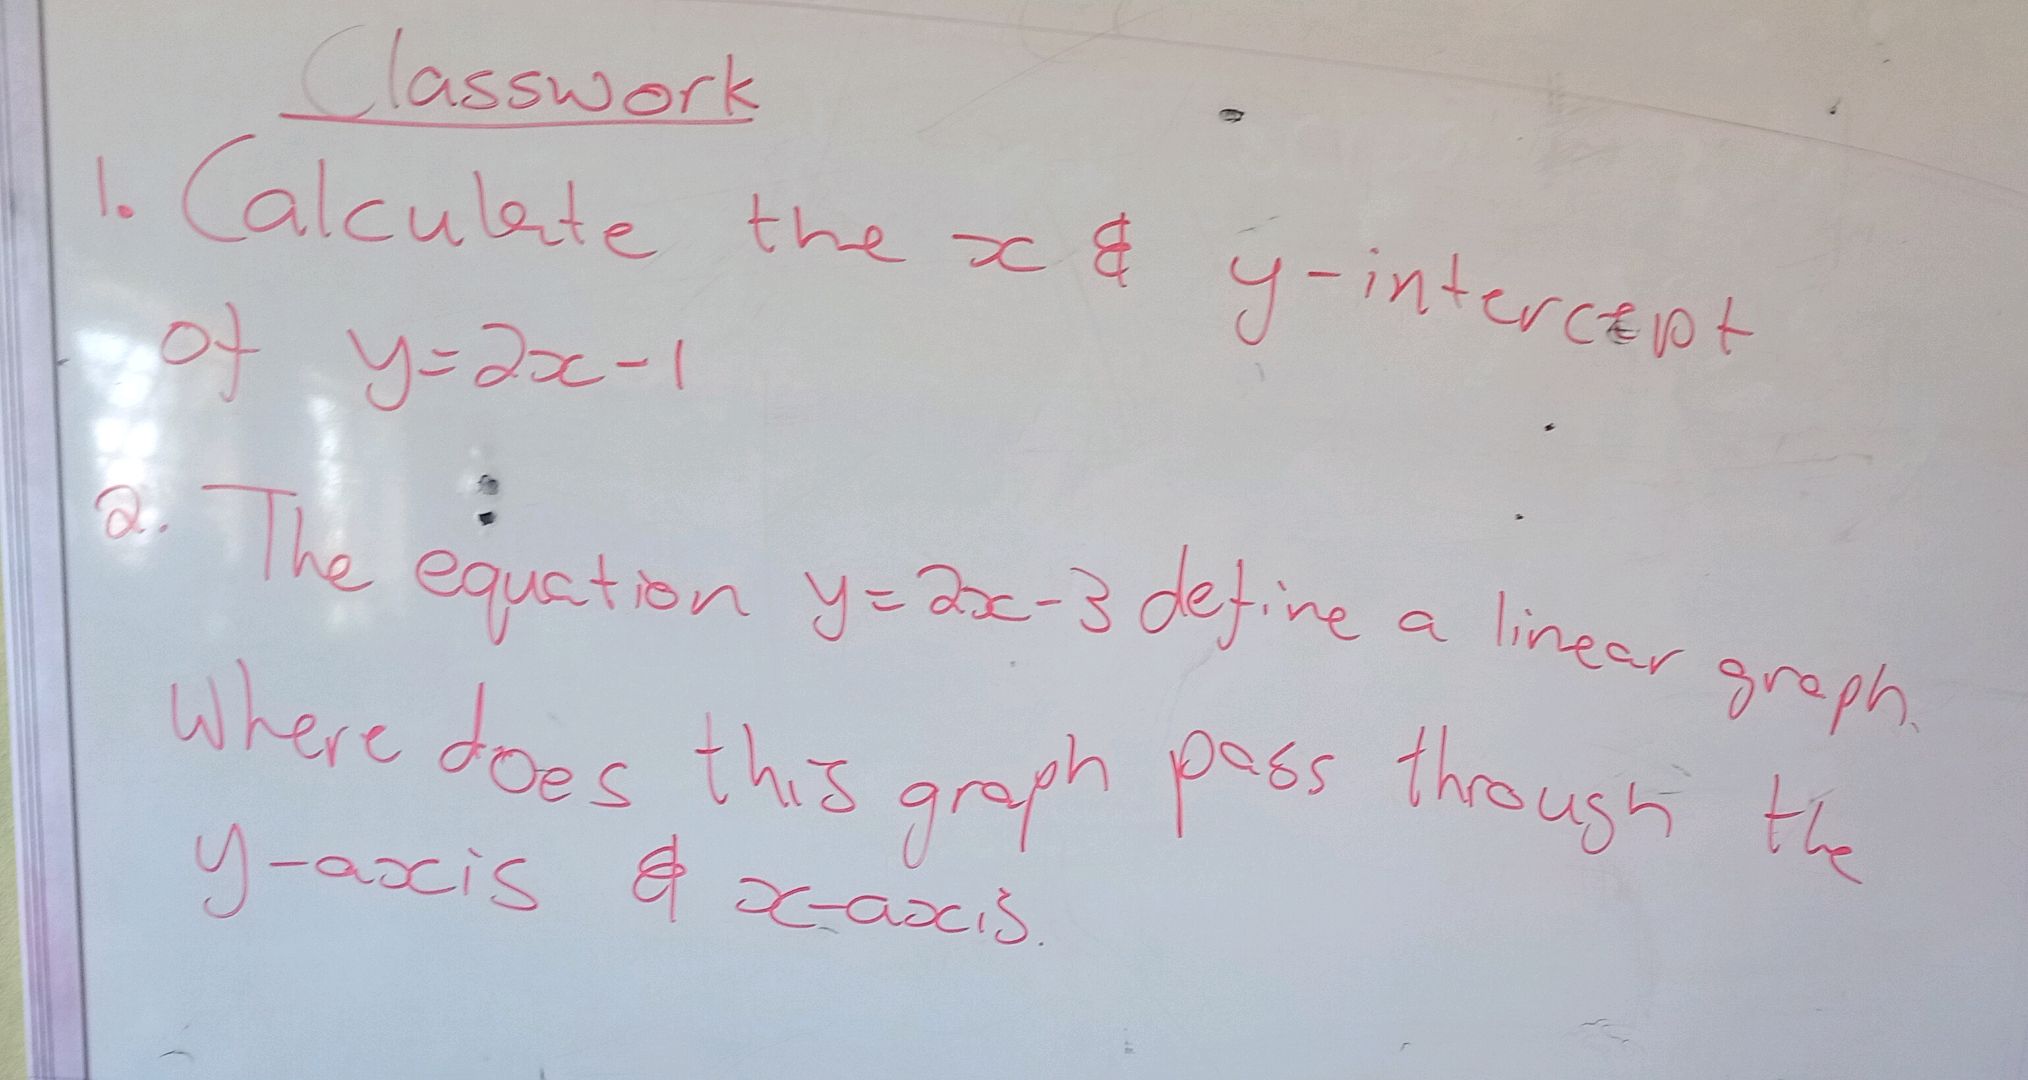 Classwork
1. Calculate the x & y-intercept
of y=2x-1
2. The equation y=2x-3 define a linear graph.
Where does this graph pass through the
y-axis & x-axis.